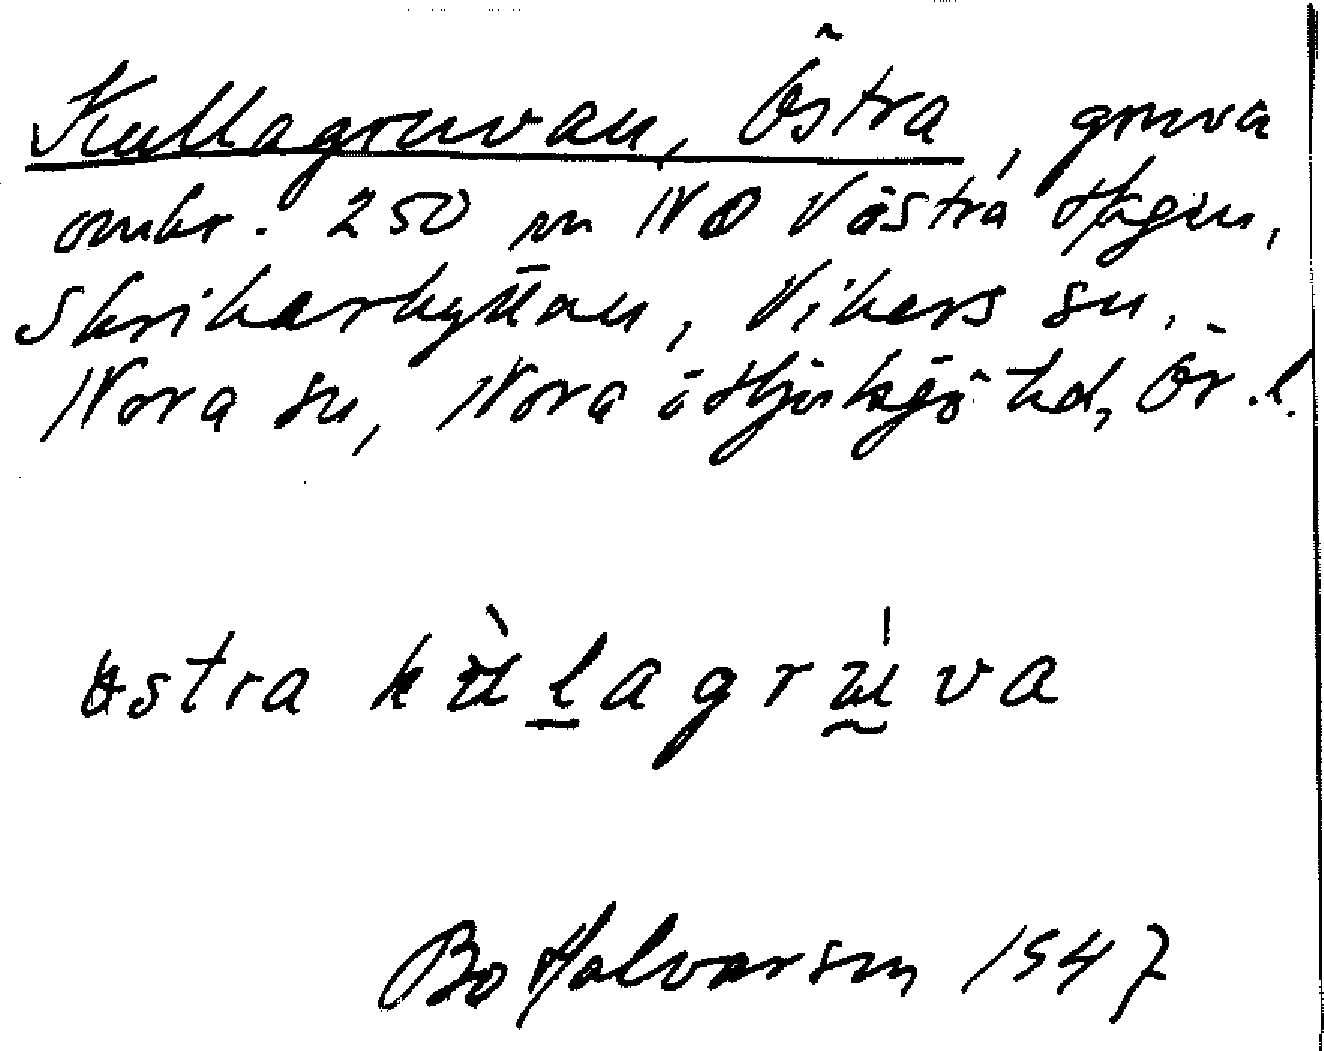 Kullagruvan, Östra, gruva
omkr. 250 m NO Västra Hgen,
Skrikarhyttan, Vikers sn.
Nora sn, Nora o Hjulsjö hd, Ör.l.
östra kùlagrúva
Bo Halvarson 1947